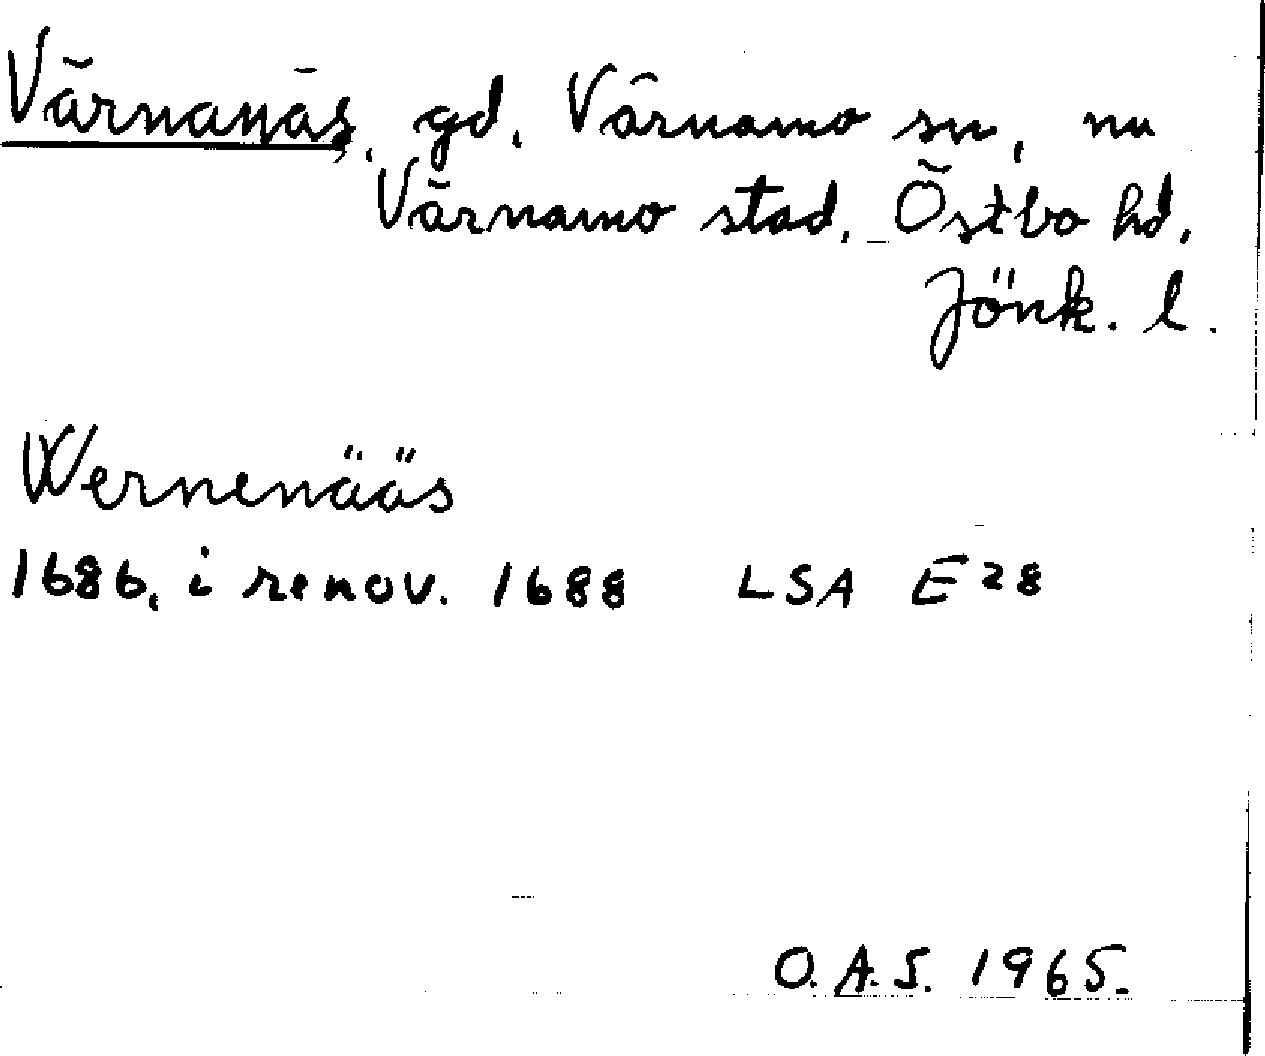 Värnanäs, gd, Värnamo sn, nu
Värnamo stad, Östbo hd,
Jönk. l.
Wernenääs
1686, i renov. 1688 LSA E28
O.A.S. 1965.